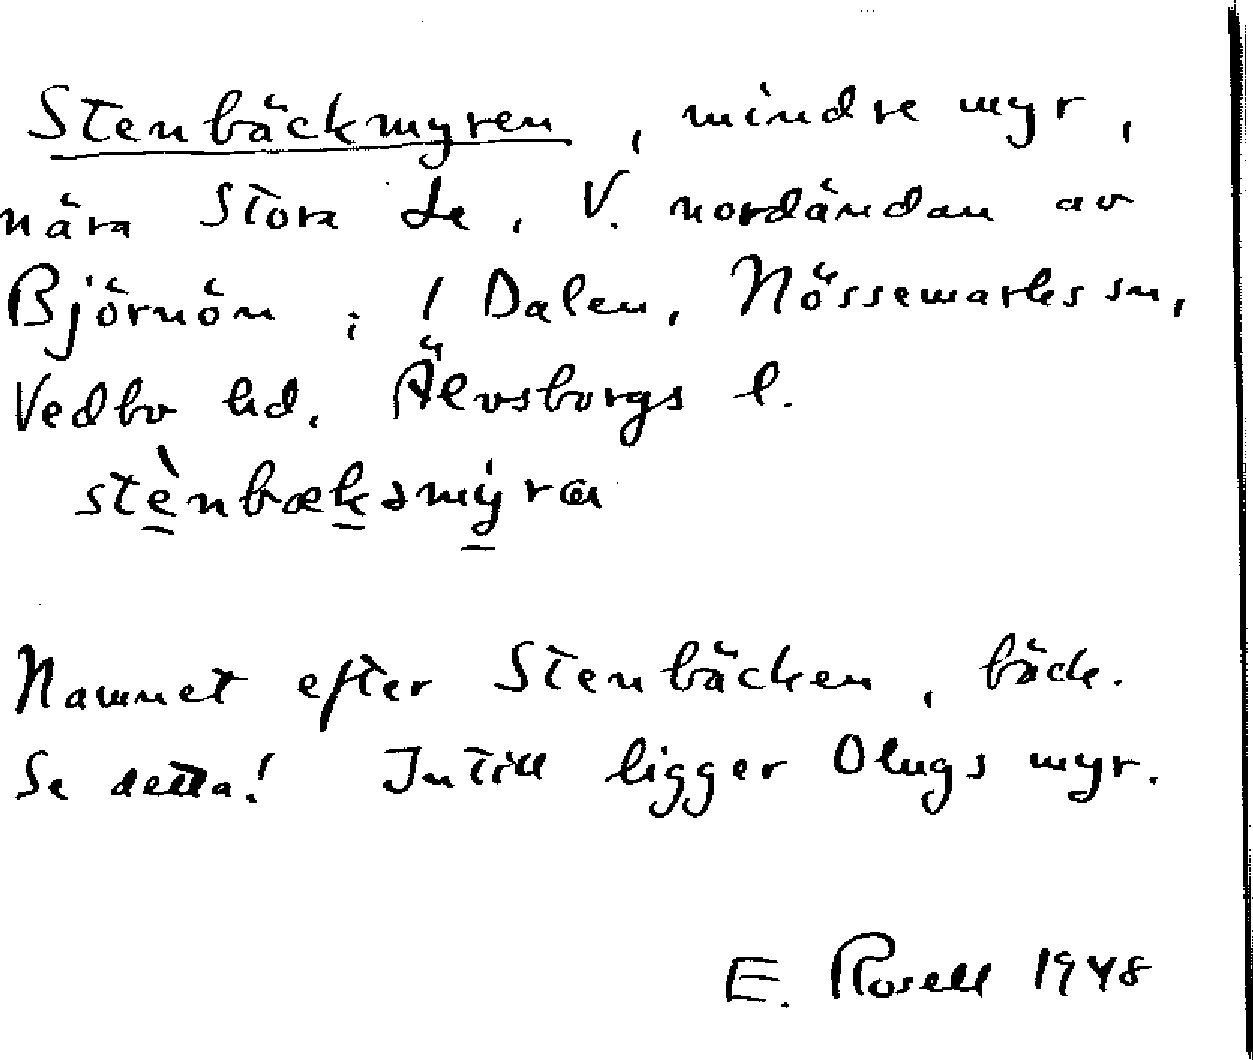 Stenbäckmyren, mindre myr,
nära Stora Le, V. nordändan av
Björnön; i Dalen, Nössemarks sn,
Vedbo hd. Älvsborgs l.
stènbæksmýra
Namnet efter Stenbäcken, bäck.
Se detta! Intill ligger Olugs myr.
E. Rosell 1948